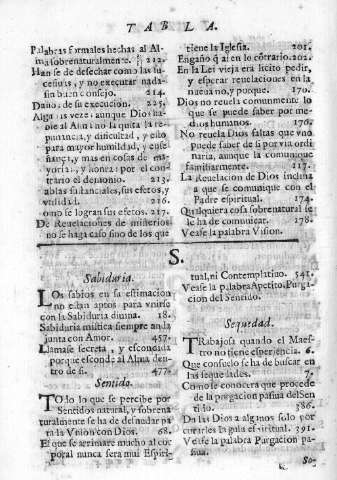 TABLA.
Palabras formales hechas al Al-
ma sobrenaturalmente. 212.
Han se de desechar como las su-
cesiuas, y no executar nada
sin buen consejo. 214.
Daños de su execucion. 225.
Algunas vezes aunque Dios ha-
ble al Alma no la quita la re-
pugnancia, y dificultad, y esto
para mayor humildad, y ense-
ñança, y mas en cosas de ma-
yoria, y honra: por el con-
trario el demonio. 213.
ablas substanciales, sus efetos, y
vtilidad. 216.
omo se logran sus efetos. 217.
De Reuelaciones de misterios
no se haga caso sino de los que
tiene la Iglesia. 201.
Engaño q̃ ai en lo cõtrario. 202.
En la Lei vieja era licito pedir,
y esperar reuelaciones en la
nueua no, y porque. 170.
Dios no reuela comunmente lo
que se puede saber por me-
dios humanos. 176.
No reuela Dios faltas que vno
puede saber de si por via ordi-
naria, aunque la comunique
familiarmente. 117.
La Reuelacion de Dios inclina
a que se comunique con el
Padre espiritual. 174.
Qualquiera cosa sobrenatural se
le ha de comunicar. 178.
Vease la palabra Vision.
S.
Sabiduria.
LOs sabios en su estimacion
no estan aptos para vnirse
con la Sabiduria diuina. 18.
Sabiduria mistica siempre anda
junta con Amor. 457.
Llamase secreta, y escondida
porque esconde al Alma dentro
de si. 477.
Sentido.
TOdo lo que se percibe por
Sentidos natural, y sobrena-
turalmente se ha de desnudar pa
ra la Vnion con Dios. 68.
El que se arrimare mucho al cor-
poral nunca sera mui Espiri-
tual, ni Contemplatiuo. 541.
Vease la palabra Apetito. Purga-
cion del Sentido.
Sequedad.
TRabajosa quando el Maes-
tro no tiene esperiencia. 6.
Que consuelo se ha de buscar en
las sequedades. 7.
Como se conocera que procede
de la purgacion pasiua del Sen-
tido. 386.
Da las Dios a algunos solo por
curarles la gula espiritual. 391.
Vease la palabra Purgacion pa-
siua.
So-